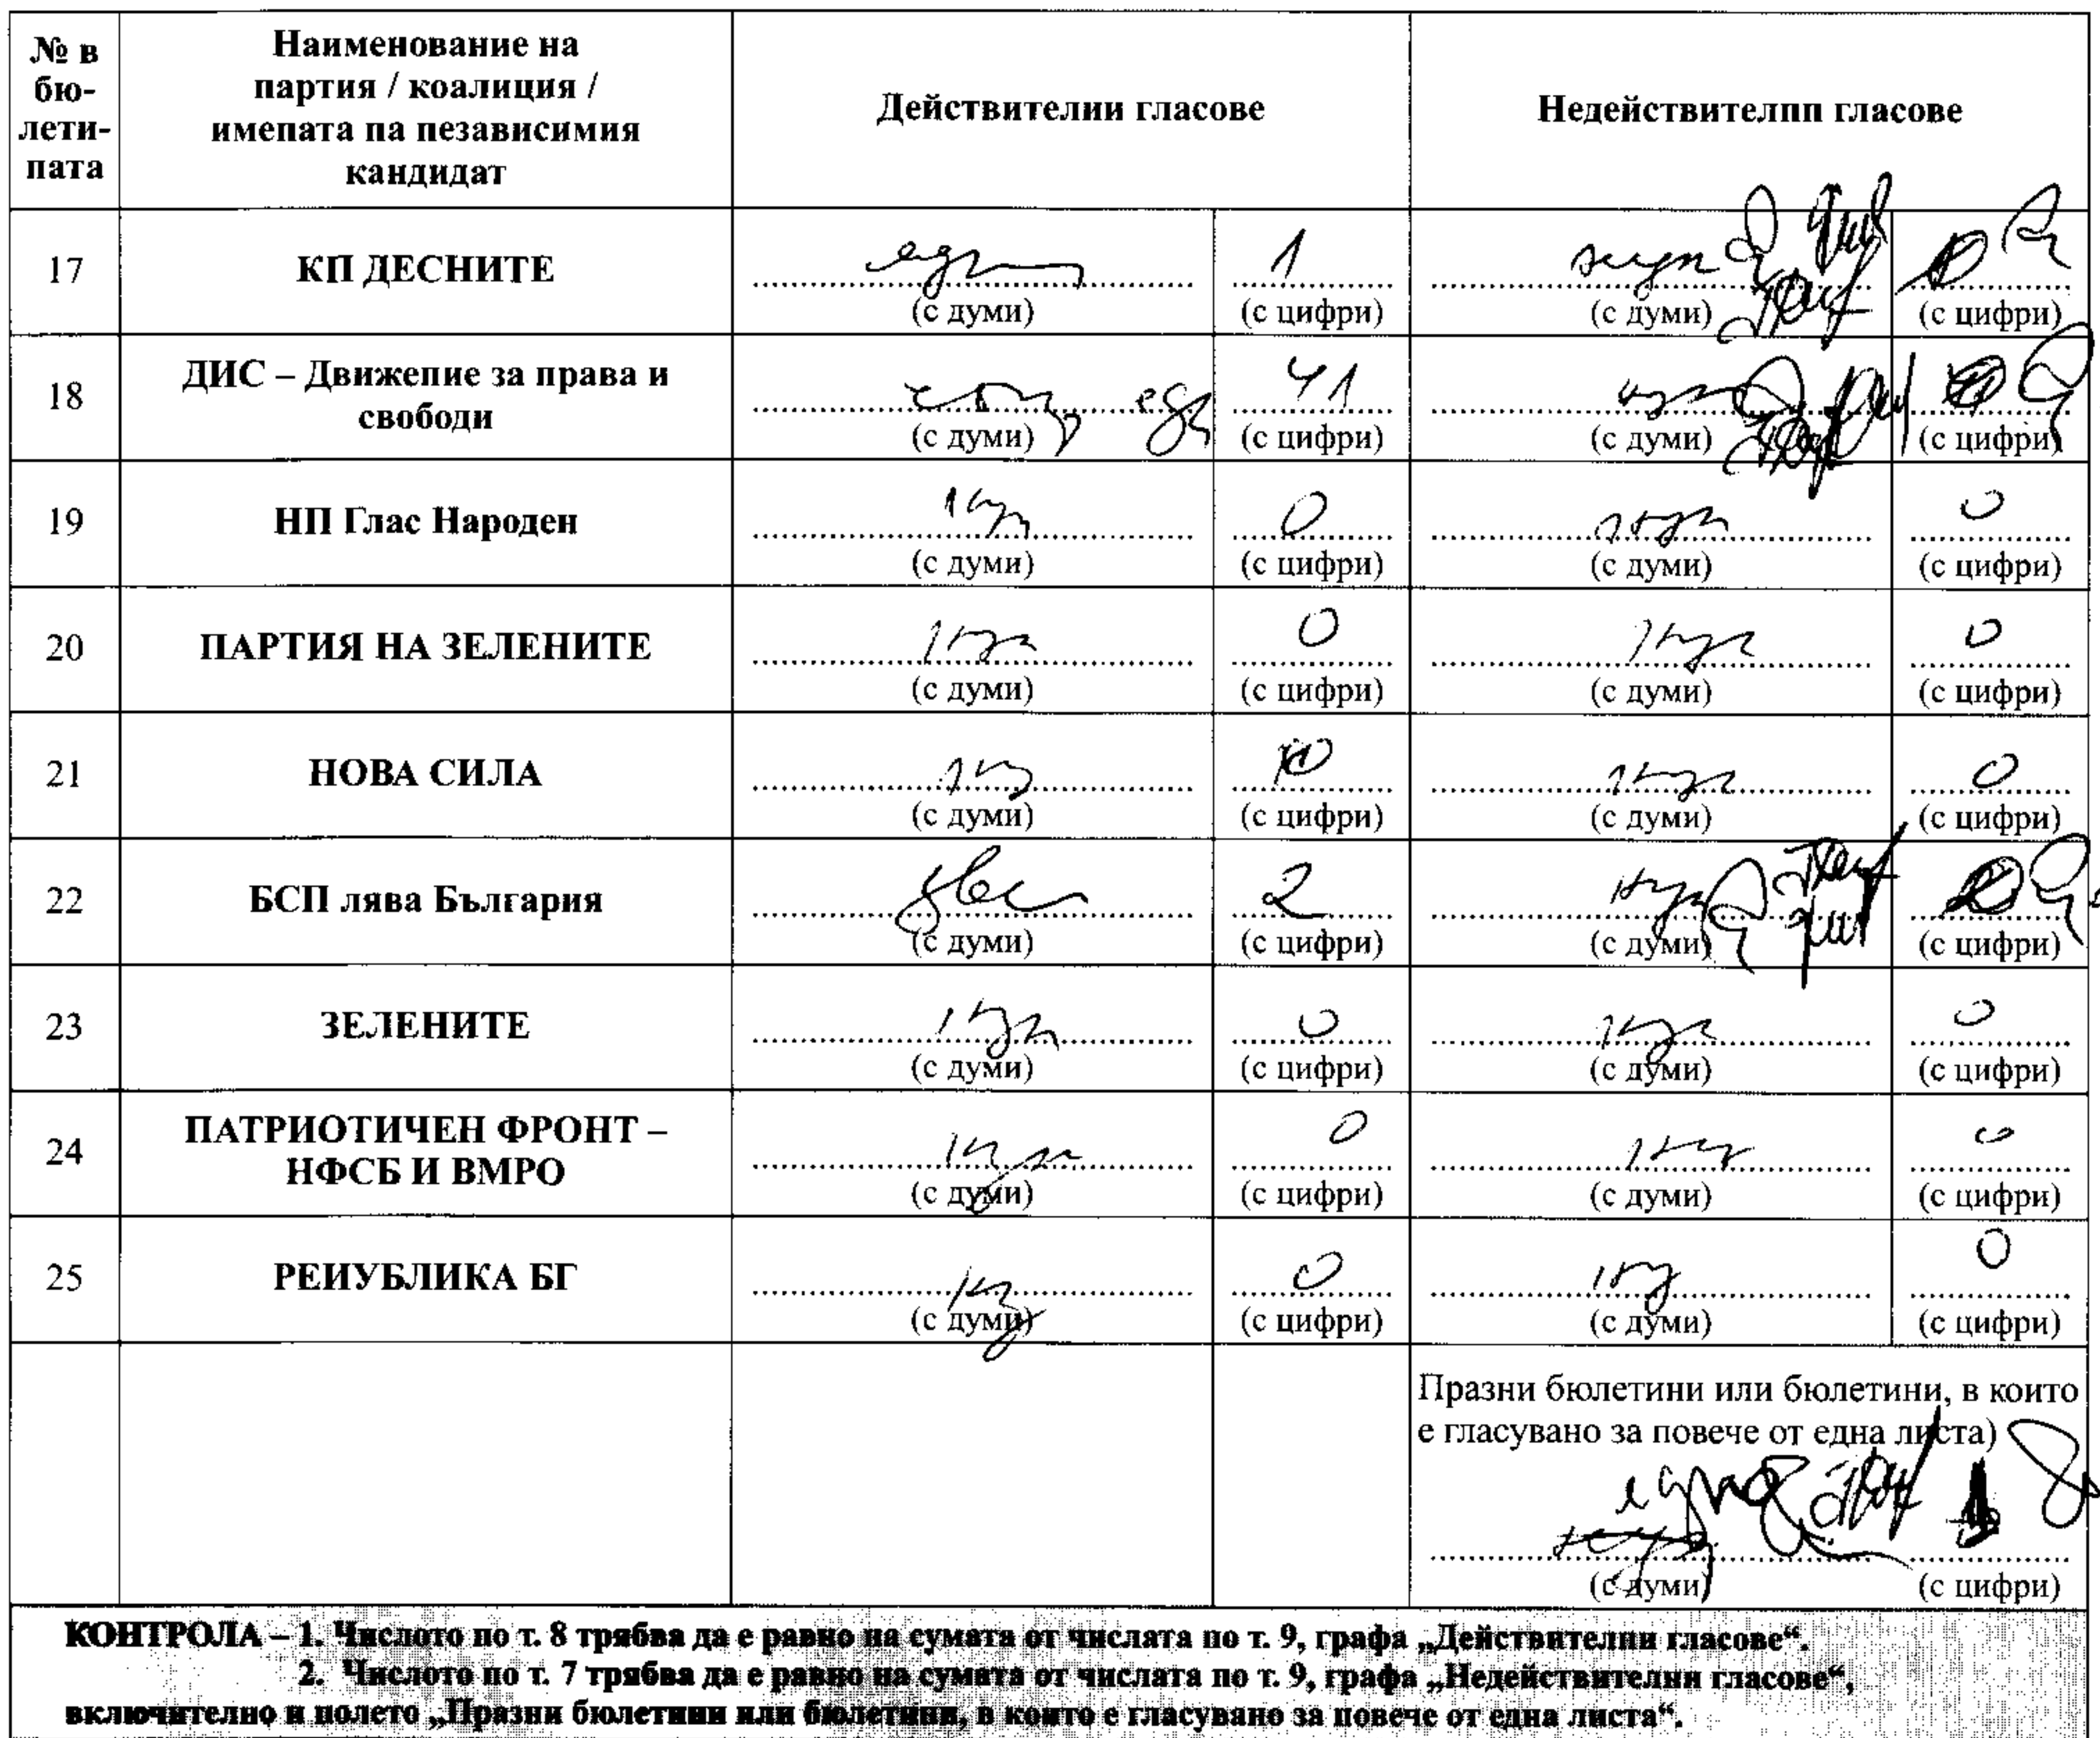 № в
бю-
лети-
пата
Наименование на
партия / коалиция /
имепата па пезависимия
кандидат
Действителии гласове
Недействителпп гласове
17
КП ДЕСНИТЕ
1
(с думи)
(с цифри)
(с думи)
(с цифри)
18
ДИС – Движепие за права и
свободи
41
(с думи)
(с цифри)
(с думи)
(с цифри)
19
НП Глас Народен
0
0
(с думи)
(с цифри)
(с думи)
(с цифри)
20
ПАРТИЯ НА ЗЕЛЕНИТЕ
0
0
(с думи)
(с цифри)
(с думи)
(с цифри)
21
НОВА СИЛА
0
(с думи)
(с цифри)
(с думи)
(с цифри)
22
БСП лява България
две
2
(с думи)
(с цифри)
(с думи)
(с цифри)
23
ЗЕЛЕНИТЕ
0
0
(с думи)
(с цифри)
(с думи)
(с цифри)
24
ПАТРИОТИЧЕН ФРОНТ –
НФСБ И ВМРО
0
0
(с думи)
(с цифри)
(с думи)
(с цифри)
25
РЕИУБЛИКА БГ
0
0
(с думи)
(с цифри)
(с думи)
(с цифри)
Празни бюлетини или бюлетини, в които
е гласувано за повече от една листа)
(с думи)
(с цифри)
КОНТРОЛА – 1. Числото по т. 8 трябва да е равно на сумата от числата по т. 9, графа „Действителни гласове“.
2. Числото по т. 7 трябва да е равно на сумата от числата по т. 9, графа „Недействителни гласове“,
включително и полето „Празни бюлетини или бюлетини, в които е гласувано за повече от една листа“.